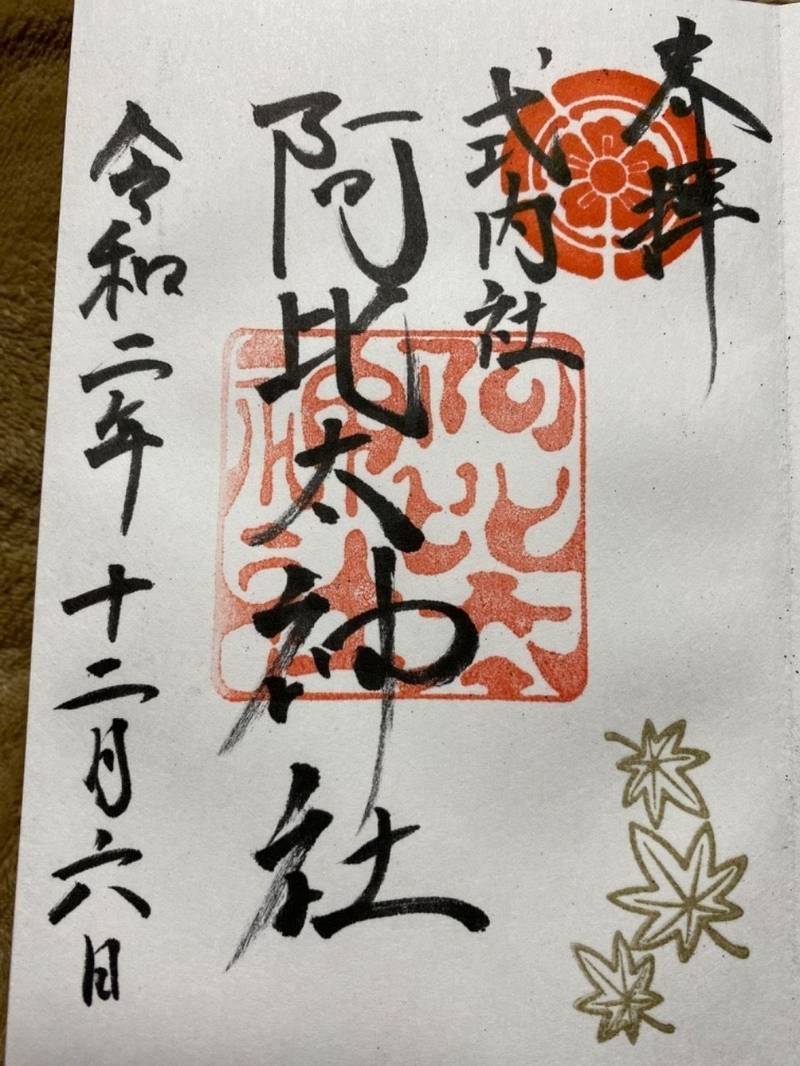 奉拝
式内社
阿比太神社
令和二年十二月六日
阿比太神社